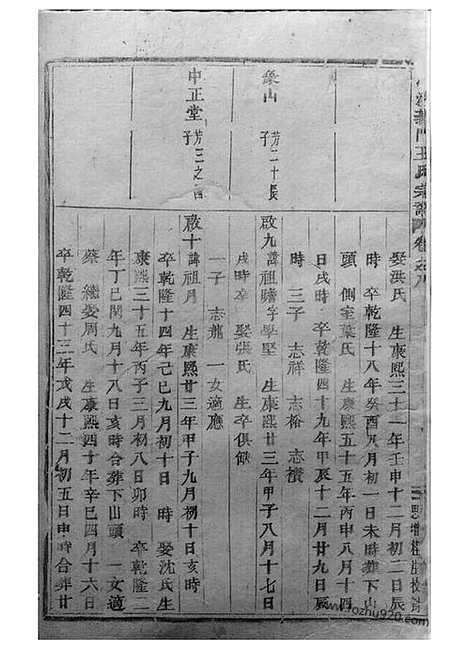 王氏宗譜 卷之八
娶洪氏 生康熙三十一年壬申十二月初二日辰
時 卒乾隆十八年癸酉八月初一日未時葬下山
頭 側室葉氏 生康熙五十五年丙申八月十四
日戌時 卒乾隆四十九年甲辰十二月廿九日辰
時 三子 志祥 志裕 志
象山 芳二十長
子
啟九 諱祖贍字學堅 生康熙廿三年甲子八月十七日
戌時卒 娶張氏 生卒俱缺
一子 志龍 一女適應
中正堂 芳三之四
子
啟十 諱祖月 生康熙廿三年甲子九月初十日亥時
卒乾隆十四年己巳九月初十日 時 娶沈氏生
康熙三十五年丙子三月初八日卯時 卒乾隆二
年丁巳閏九月十八日亥時合葬下山頭 一女適
蔡 繼娶周氏 生康熙四十年辛巳四月十六日
卒乾隆四十三年戊戌十二月初五日申時合葬廿
www.ozhu920.com